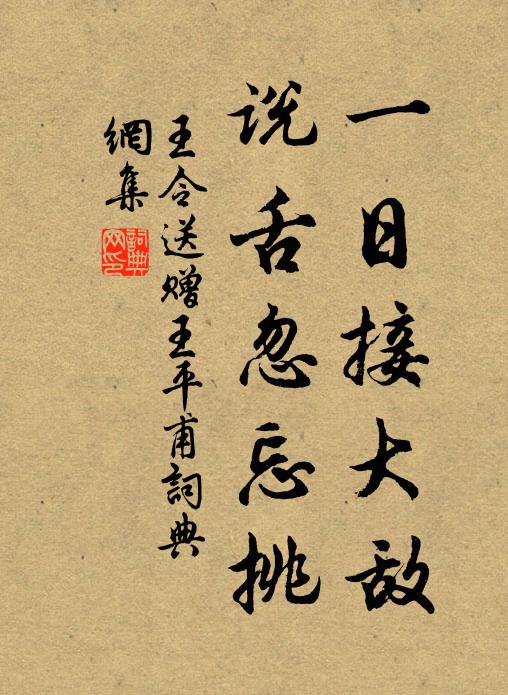 一日接大敌
说舌忽忘挑
王令送赠王平甫詞典
網集
詞典
网印